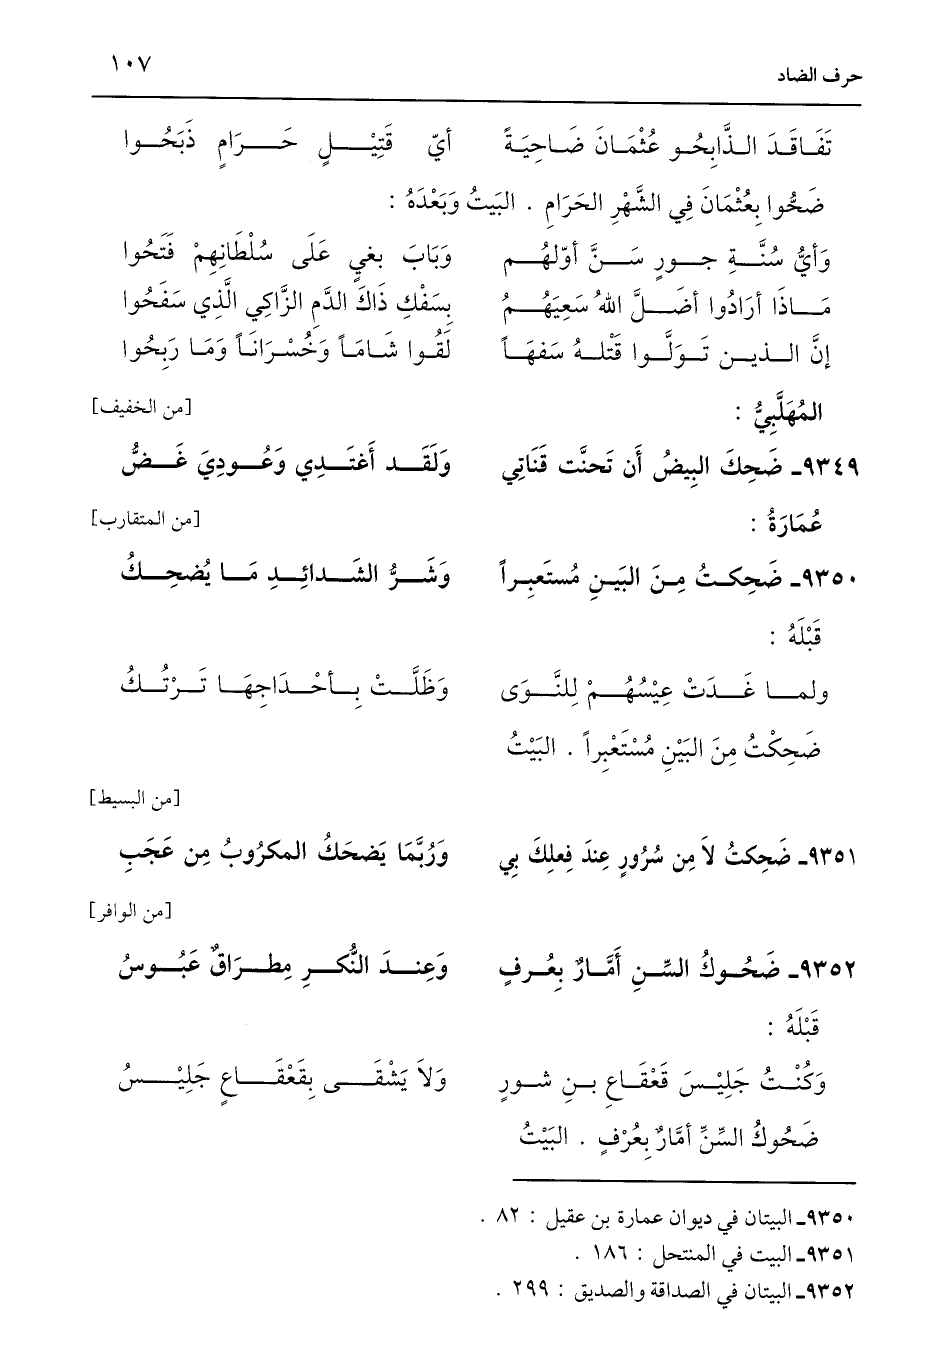 حرف الضاد ١٠٧
تَفَاقَدَ الذَّابِحُو عُثْمَانَ ضَاحِيَةً أيّ قَتِيْلٍ حَرَامٍ ذَبَحُوا
ضَحُّوا بِعُثْمَانَ فِي الشَّهْرِ الحَرَامِ . البَيتُ وَبَعْدَهُ :
وَأيُّ سُنَّةِ جورٍ سَنَّ أوّلهُم وَبَابَ بغيٍ عَلَى سُلْطَانِهِمْ فَتَحُوا
مَاذَا أرَادُوا أضَلَّ اللهُ سَعيَهُمُ بِسَفْكِ ذَاكَ الدَّمِ الزَّاكِي الَّذِي سَفَحُوا
إنَّ الذين تَوَلَّوا قَتْلهُ سَفهَاً لَقُوا شَامَاً وَخُسْرَانَاً وَمَا رَبِحُوا
المُهَلَّبِيُّ : [من الخفيف]
٩٣٤٩ـ ضَحِكَ البِيضُ أَن تَحنَّت قَنَاتِي وَلَقَد أَغتَدِي وَعُودِيَ غَضُّ
عُمَارَةُ : [من المتقارب]
٩٣٥٠ـ ضَحِكتُ مِنَ البَينِ مُستَعبِراً وَشَرُّ الشَدائِدِ مَا يُضحِكُ
قَبْلَهُ :
ولما غَدَتْ عِيْسُهُمْ لِلنَّوَى وَظَلَّتْ بِأحْدَاجِهَا تَرْتُكُ
ضَحِكْتُ مِنَ البَيْنِ مُسْتَعْبِراً . البَيْتُ
[من البسيط]
٩٣٥١ـ ضَحِكتُ لاَ مِن سُرُورٍ عِندَ فِعلِكَ بِي وَرُبَّمَا يَضحَكُ المكرُوبُ مِن عَجَبِ
[من الوافر]
٩٣٥٢ـ ضَحُوكُ السِّنِ أَمَّارٌ بِعُرفٍ وَعِندَ النُّكرِ مِطرَاقٌ عَبُوسُ
قَبْلَهُ :
وَكُنْتُ جَلِيْسَ قَعْقَاعِ بنِ شورٍ وَلاَ يَشْقَى بِقَعْقَاعٍ جَلِيْسُ
ضَحُوكُ السِّنِّ أمَّارٌ بِعُرْفٍ . البَيْتُ
٩٣٥٠ـ البيتان في ديوان عمارة بن عقيل : ٨٢ .
٩٣٥١ـ البيت في المنتحل : ١٨٦ .
٩٣٥٢ـ البيتان في الصداقة والصديق : ٢٩٩ .